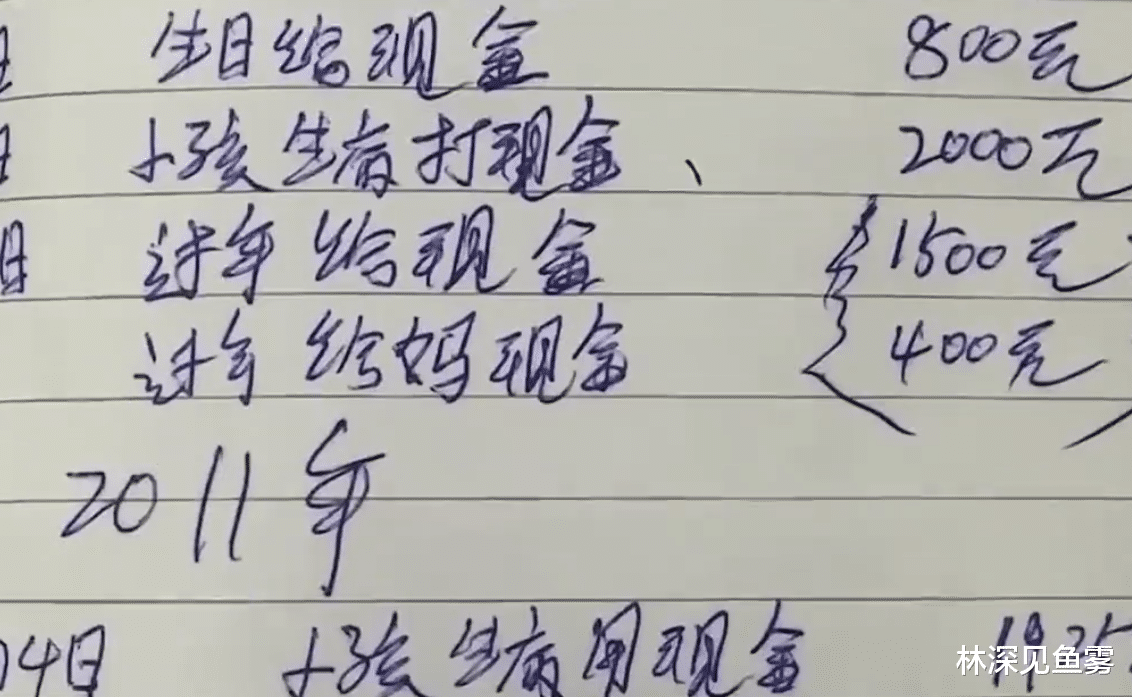 日 生日给现金 800元
日 小孩生病打现金、 2000元
日 过年给现金 1500元
过年给妈现金 400元
2011年
04日 小孩生病用现金
林深见鱼雾